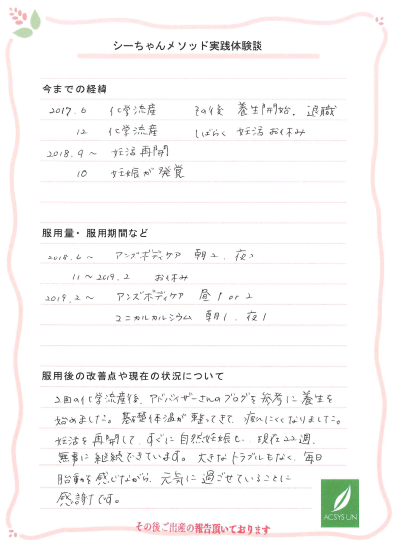 シーちゃんメソッド実践体験談
今までの経緯
2017.6 化学流産 その後 養生開始、退職
12 化学流産 しばらく 妊活お休み
2018.9〜 妊活再開
10 妊娠が発覚
服用量・服用期間など
2018.6〜 アンズボディケア 朝2、夜2
11〜2019.2 お休み
2019.2〜 アンズボディケア 昼1 or 2
ユニカルカルシウム 朝1、夜1
服用後の改善点や現在の状況について
2回の化学流産後、アドバイザーさんのブログを参考に養生を
始めました。基礎体温が整ってきて、疲れにくくなりました。
妊活を再開して、すぐに自然妊娠し、現在22週。
無事に継続できています。大きなトラブルもなく、毎日
胎動を感じながら、元気に過ごせていることに
感謝です。
ACSYS UN
その後ご出産の報告頂いております